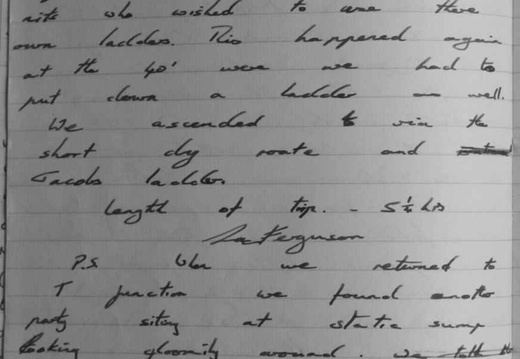 who wished to use there
own ladders. This happened again
at the 40' were we had to
put down a ladder as well.
We ascended via the
short dry route and
Jacobs ladder.
Length of trip. - 5½ hrs
Ferguson
P.S When we returned to
T junction we found another
party siting at static sump
looking gloomily around. we